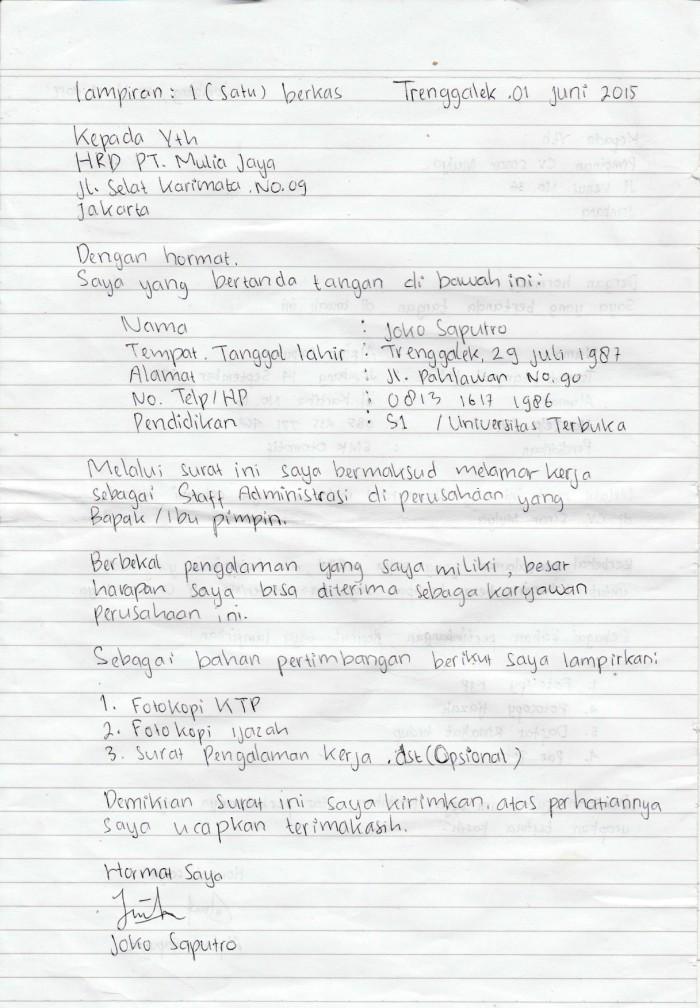 Lampiran : 1 (Satu) berkas Trenggalek .01 Juni 2015
Kepada Yth
HRD PT. Mulia Jaya
Jl. Selat Karimata . No. 09
Jakarta
Dengan hormat.
Saya yang bertanda tangan di bawah ini :
Nama : Joko Saputro
Tempat . Tanggal lahir : Trenggalek, 29 Juli 1987
Alamat : Jl. Pahlawan No. 90
No. Telp/HP : 0813 1617 1986
Pendidikan : S1 / Universitas Terbuka
Melalui surat ini saya bermaksud melamar kerja
sebagai Staff Administrasi di perusahaan yang
Bapak / Ibu pimpin.
Berbekal pengalaman yang saya miliki , besar
harapan saya bisa diterima sebaga karyawan
perusahaan ini.
Sebagai bahan pertimbangan berikut saya lampirkan:
1. Fotokopi KTP
2. Fotokopi ijazah
3. Surat Pengalaman Kerja . dst (Opsional)
Demikian surat ini saya kirimkan. atas perhatiannya
saya ucapkan terimakasih.
Hormat Saya
Joko Saputro